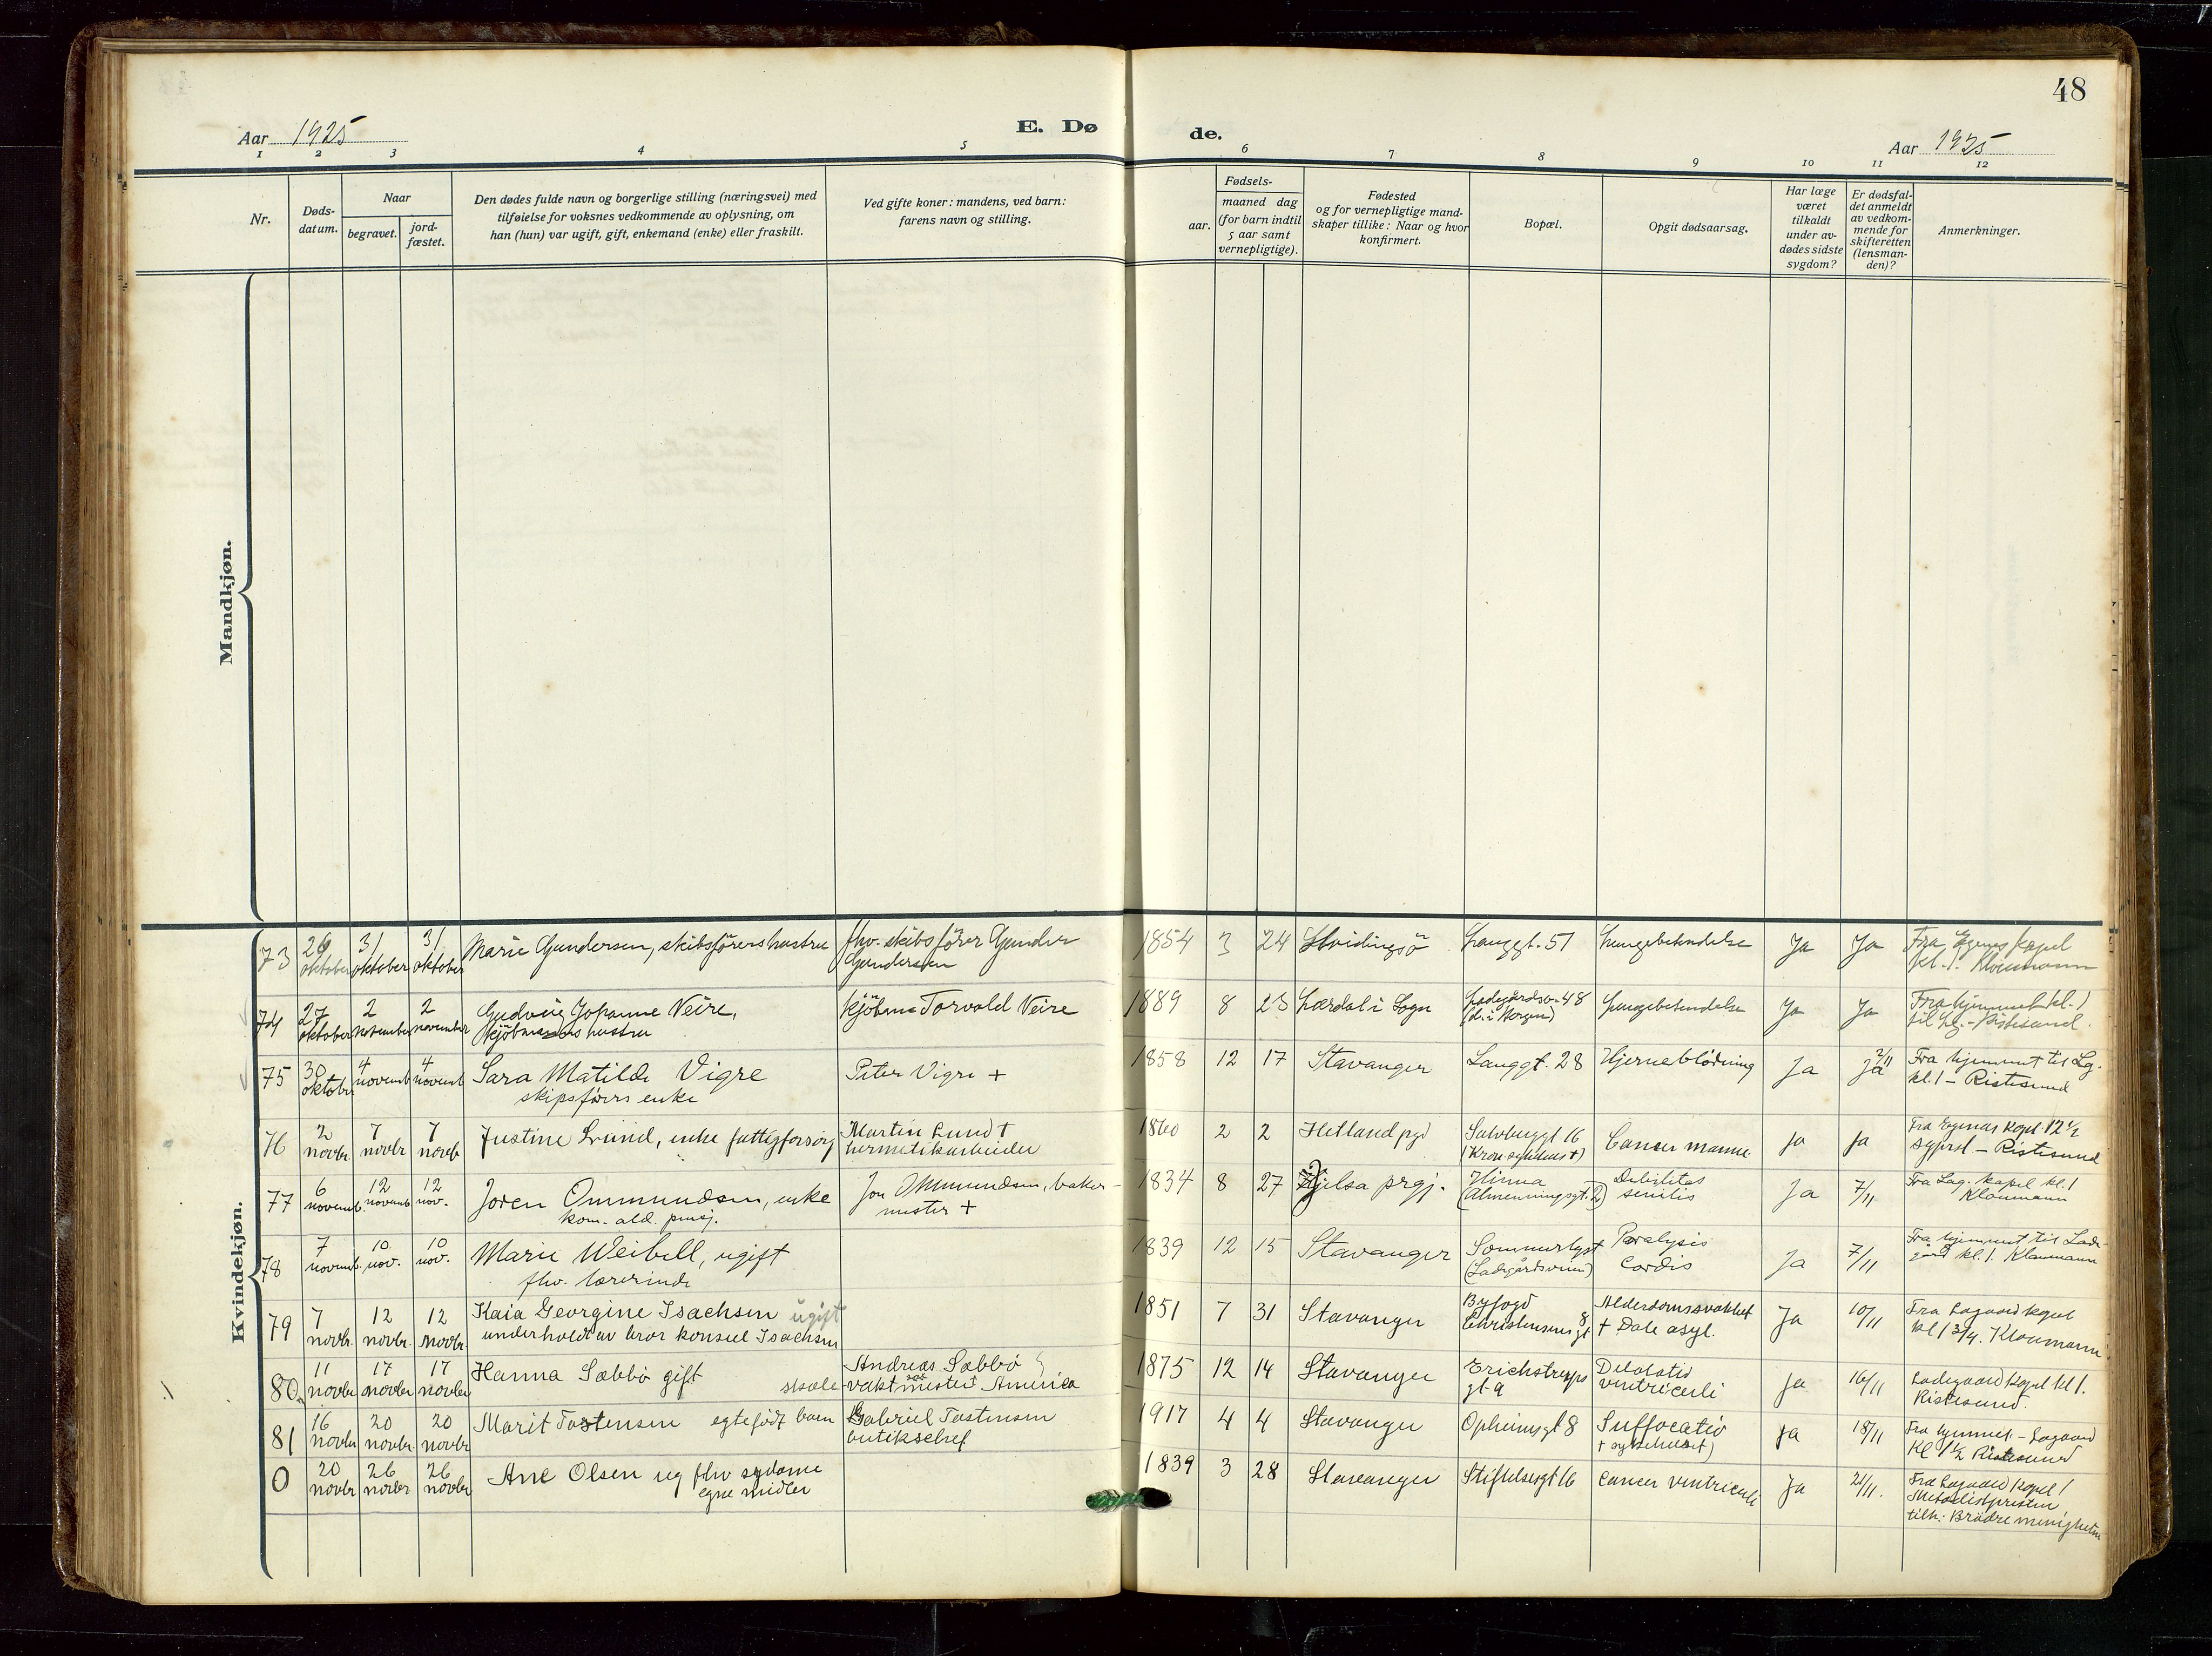 48
Aar 1925
E. Dø
de.
Aar 1925
1 2 3 4 5 6 7 8 9 10 11 12
Nr.
Døds-
datum.
Naar
begravet.
jord-
fæstet.
Den dødes fulde navn og borgerlige stilling (næringsvei) med
tilføielse for voksnes vedkommende av oplysning, om
han (hun) var ugift, gift, enkemand (enke) eller fraskilt.
Ved gifte koner: mandens, ved barn:
farens navn og stilling.
Fødsels-
aar.
maaned dag
(for barn indtil
5 aar samt
vernepligtige).
Fødested
og for vernepligtige mand-
skaper tillike: Naar og hvor
konfirmert.
Bopæl.
Opgit dødsaarsag.
Har læge
været
tilkaldt
under av-
dødes sidste
sygdom?
Er dødsfal-
det anmeldt
av vedkom-
mende for
skifteretten
(lensman-
den)?
Anmerkninger.
Mandkjøn.
Kvindekjøn.
73
26
oktober
31
oktober
31
oktober
Marie Gundersen, skibsførers hustru
fhv. skibsfører Gunder
Gundersen
1854 3 24
Hvidingsö
Langgt. 51
Lungebetændelse
Ja
Ja
Fra Egenes kapel
kl. 1. Kloumann
74
27
oktober
2
november
2
november
Gudveig Johanne Veire,
kjöbmands hustru
kjöbm. Torvald Veire
1889 8 23
Lærdal i Sogn
Ladegårdsv. 48
Lungebetendelse
Ja
Ja
Fra hjemmet kl. 1
til Lg. - Ristesund.
75
30
oktober
4
novemb
4
novemb
Sara Matilde Vigre
skipsførers enke
Peter Vigre +
1858 12 17
Stavanger
Langgt. 28
Hjerneblödning
Ja
2/11
Ja
Fra hjemmet til Lg.
kl. 1 - Ristesund
76
2
novbr
7
novbr
7
novbr
Justine Lund, enke fattigforsørg
Martin Lund +
hermetikarbeider
1860 2 2
Hetland pgd
Cancer mamme
Ja
Ja
Fra Egenes Kapel 12 1/2
sypres - Ristesund
77
6
novemb.
12
novemb.
12
nov.
Joren Ommundsen, enke
kom. ald. pensj.
Jon Ommundsen, baker-
mester +
1834 8 27
Hjelsa prgj.
Hinna
(Almenningsgt. 2)
Debilitas
senilis
Ja
7/11
Fra Lag. kapel kl. 1
Kloumann
78
7
novemb.
10
nov.
10
nov.
Marie Weibell, ugift
fhv. lærerinde
1839 12 15
Stavanger
Sommerlyst
(Ladegårdsveien)
Paralysis
Cordis
Ja
7/11
Fra hjemmet til Lade-
gård kl. 1. Kloumann
79
7
novbr.
12
novbr.
12
novbr.
Kaia Georgine Isachsen ugift
underholdt av bror konsul Isachsen
1851 7 31
Stavanger
Byfogd
Christensens gt 8
Alderdomssvakhet
+ Dale asyl.
Ja
10/11
Fra Lagaard kapel
kl 1 3/4. Kloumann.
80
11
novbr
17
novbr
17
novbr
Hanna Sæbbö gift
Andreas Sæbbö
skole-vaktmester America
1875 12 14
Stavanger
Erichstrups
gt 9
Dilatatio
ventriculi
Ja
16/11
Ladegaard Kapel kl 1.
Ristesund.
81
16
novbr
20
novbr.
20
novbr
Marit Tostensen egtefødt barn
Gabriel Tostensen
butikschef
1917 4 4
Stavanger
Opheimsgt 8
Suffocatio
+ sykehuset)
Ja
18/11
Fra hjemmet - Lagaard
Kl 1 1/2 Ristesund
0
20
novbr
26
novbr
26
novbr
Ane Olsen ug fhv sydame
egne midler
1839 3 28
Stavanger
Stiftelsesgt 16
Cancer ventriculi
Ja
21/11.
Fra Lagaard Kapel 1
Metodistpresten
tilh: Brödremenigheten